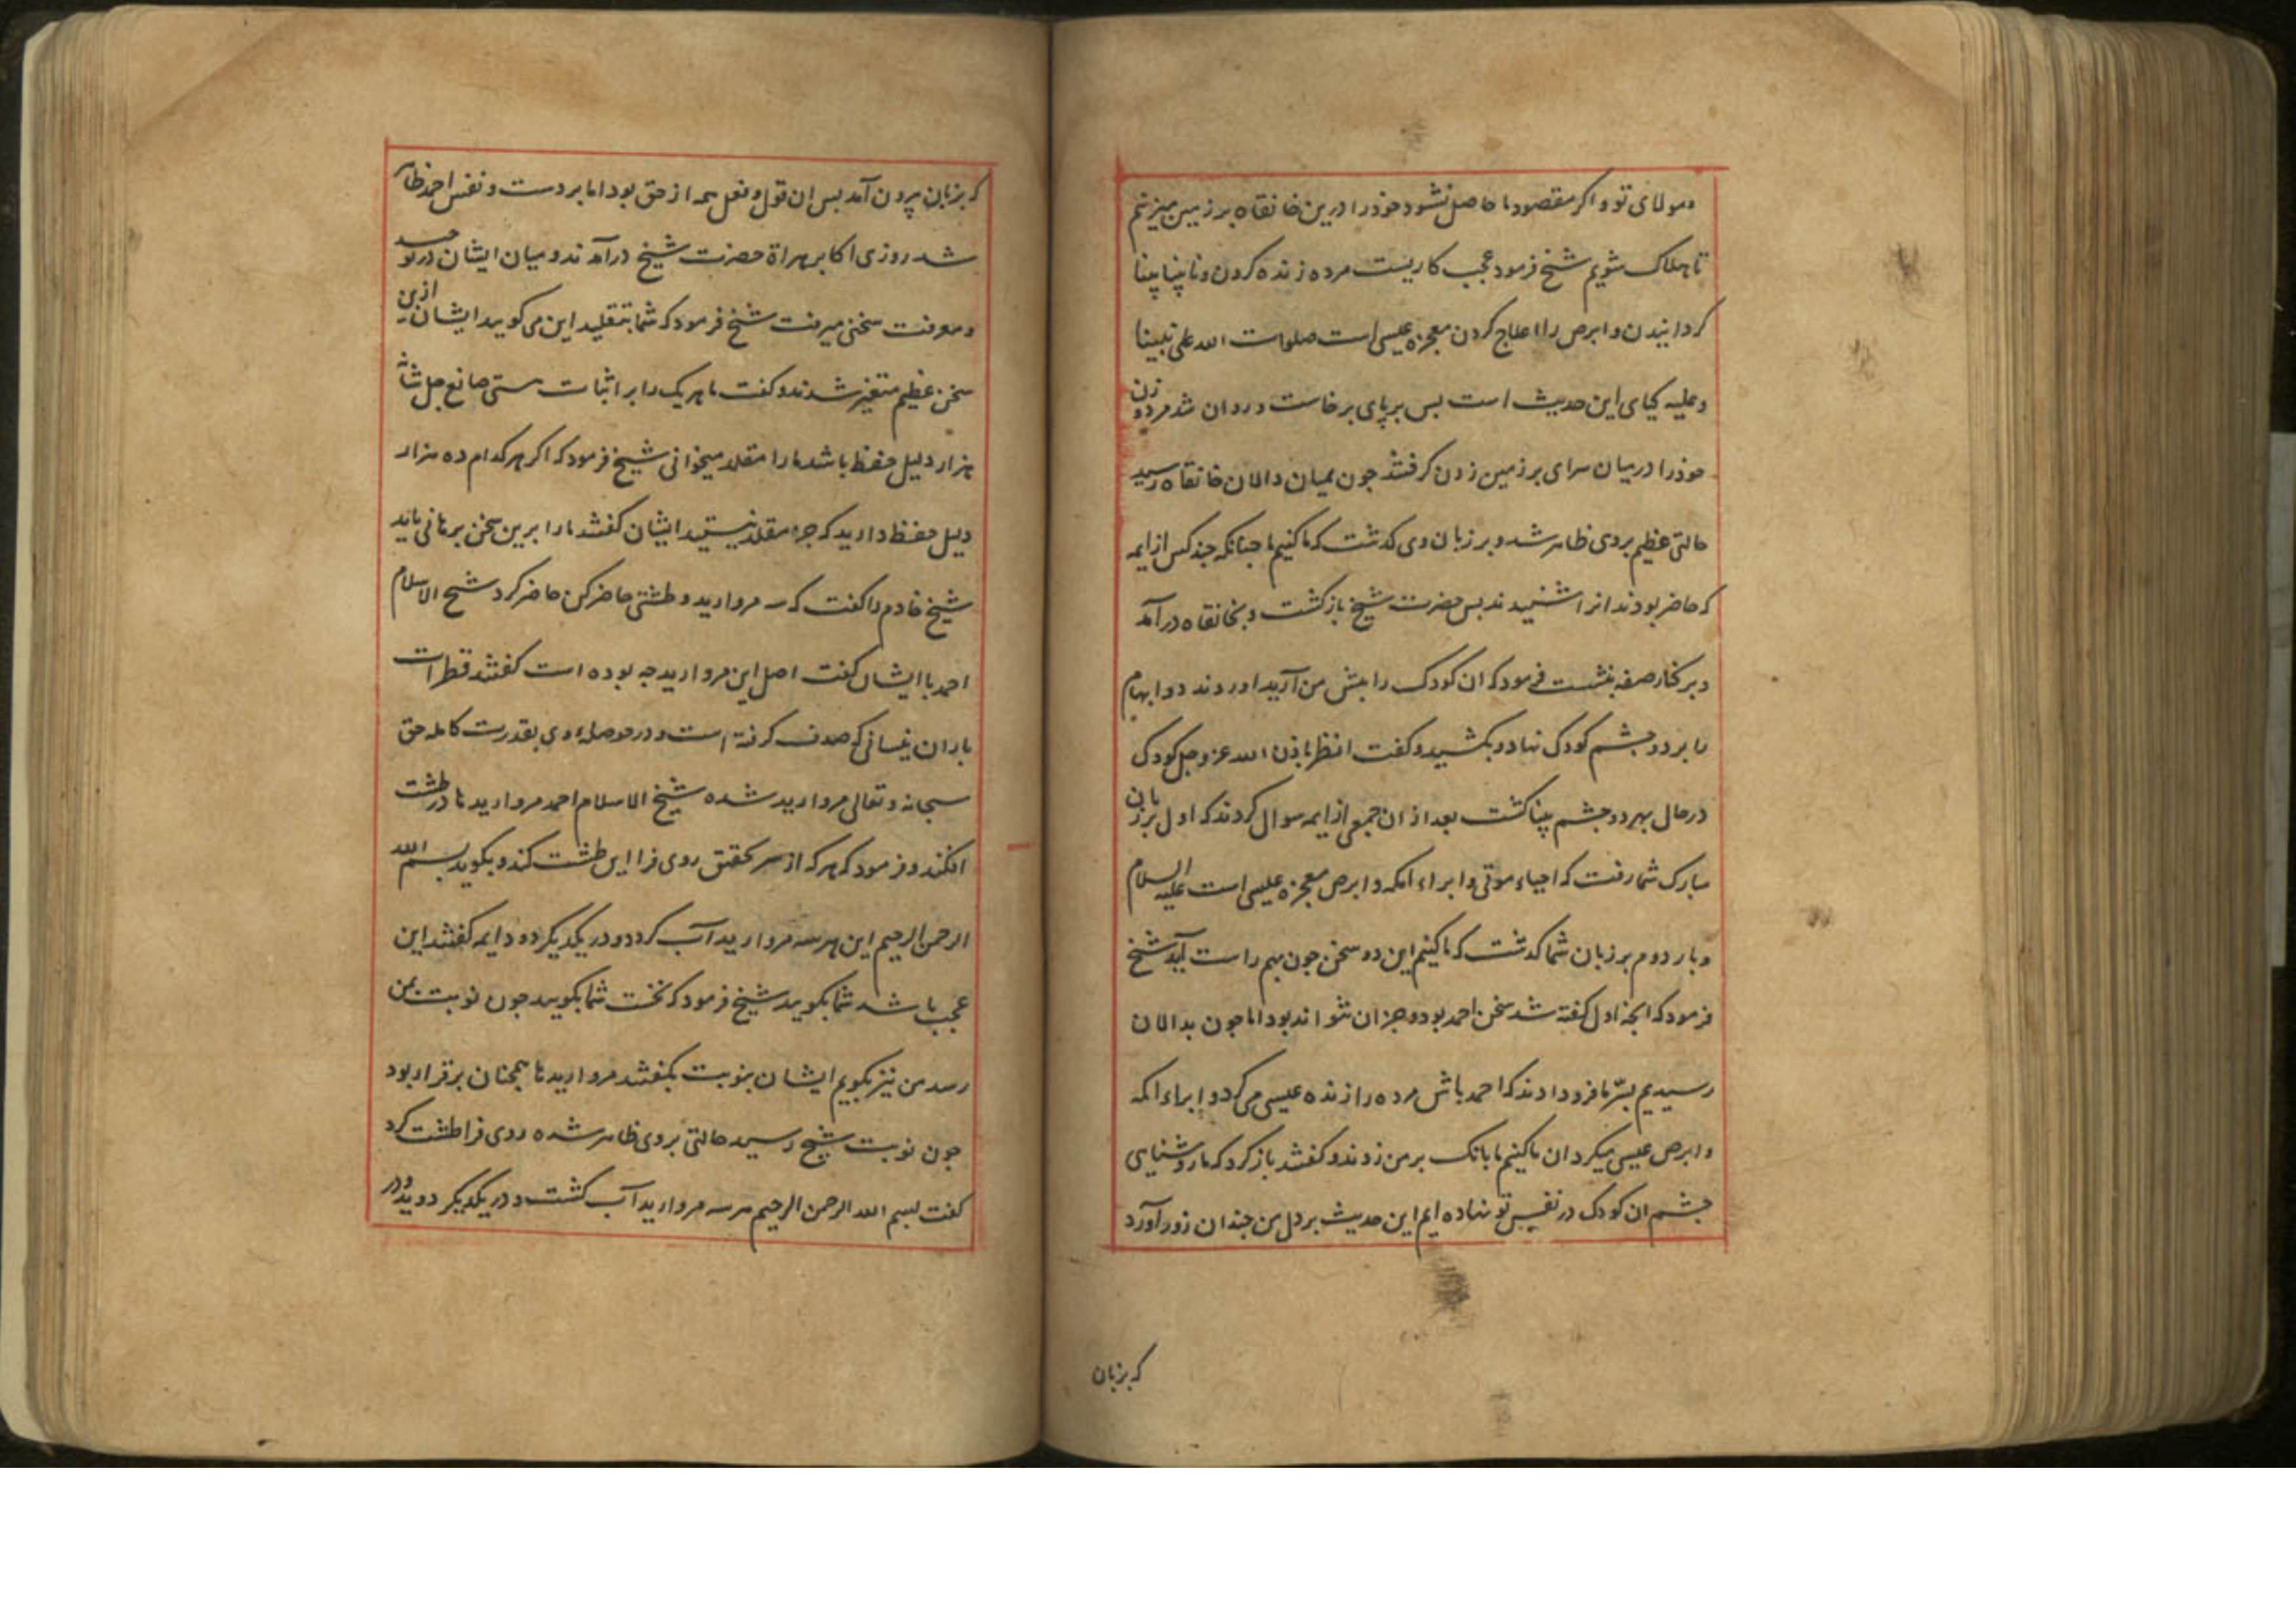 ومولای تو و اکر مقصود ما حاصل نشود خود را درین خانقاه بر زمین میزنیم
تا هلاک شویم شیخ فرمود عجب کاریست مرده زنده کردن و نابینا بینا
کردانیدن و ابرص را علاج کردن معجزه عیسی است صلوات الله علی نبینا
وعلیه کیای این حدیث است بس بر پای برخاست و روان شد مرد و زن
خود را در میان سرای بر زمین زدن کرفتند جون بمیان دالان خانقاه رسید
حالتی عظیم بر وی ظاهر شد و بر زبان وی کدشت که ما کنیم ما جنانکه جند کس از ایمه
که حاضر بودند انرا شنیدند بس حضرت شیخ باز کشت و بخانقاه در آمد
و بر کنار صفه بنشست فرمود که ان کودک را بیش من آرید اوردند دو ابهام
را بر دو جشم کودک نهاد و بکشید و کفت انظر باذن الله عز وجل کودک
در حال بهر دو جشم بینا کشت بعد از ان جمعی از ایمه سوال کردند که اول بر زبان
مبارک شما رفت که احیاء موتی و ابراء اکمه و ابرص معجزه عیسی است علیه السلام
و بار دوم بر زبان شما کدشت که ما کنیم این دو سخن جون بهم راست آید شیخ
فرمود که انجه اول کفته شد سخن احمد بود و جز ان نتواند بود اما جون بدالان
رسیدیم بسر ما فرو دادند که احمد باش مرده را زنده عیسی می کرد و ابراء اکمه
و ابرص عیسی میکرد ان ما کنیم ما بانک بر من زدند و کفتند باز کرد که ما روشنیای
جشم ان کودک در نفس تو نهاده ایم این حدیث بر دل من جندان زور آورد
که بر زبان
که بر زبان بیرون آمد بس ان قول و فعل همه از حق بود اما بر دست و نفس احمد ظاهر
شد روزی اکابر هراة حضرت شیخ درآمدند و میان ایشان در توحید
و معرفت سخنی میرفت شیخ فرمود که شما بتقلید این می کویید ایشان ازین
سخن عظیم متغیر شدند و کفت ما هر یک را بر اثبات هستی صانع جل شانه
هزار دلیل حفظ باشد ما را مقلد میخوانی شیخ فرمود که اکر هر کدام ده هزار
دلیل حفظ دارید که جز مقلد نیستید ایشان کفتند ما را برین سخن برهانی باید
شیخ خادم را کفت که سه مروارید و طشتی حاضر کن حاضر کرد شیخ الاسلام
احمد با ایشان کفت اصل این مروارید جه بوده است کفتند قطرات
باران نیسانی که صدف کرفته است و در حوصله وی بقدرت کامله حق
سبحانه و تعالی مروارید شده شیخ الاسلام احمد مروارید ها در طشت
افکند و فرمود که هر که از سر تحقیق روی فرا این طشت کند و بکوید بسم الله
الرحمن الرحیم این هر سه مروارید آب کردد و در یکدیکر دود ایمه کفتند این
عجب باشد شما بکویید شیخ فرمود که نخست شما بکویید جون نوبت بمن
رسد من نیز بکویم ایشان بنوبت بکفتند مروارید ها همجنان بر قرار بود
جون نوبت شیخ رسید حالتی بر وی ظاهر شده روی فرا طشت کرد
کفت بسم الله الرحمن الرحیم هر سه مروارید آب کشت و در یکدیکر دوید و در